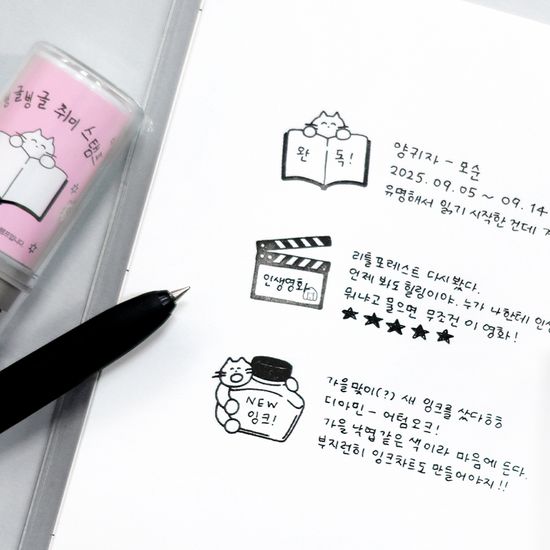 글벙글 취미 스탬프
완 독!
양귀자 - 모순
2025.09.05 ~ 09.14
유명해서 읽기 시작한건데
인생영화
리틀포레스트 다시 봤다.
언제 봐도 힐링이야. 누가 나한테 인생
뭐냐고 물으면 무조건 이 영화!
★★★★★
NEW
잉크!
가을맞이(?) 새 잉크를 샀다흐흐
디아민 - 어텀오크!
가을 낙엽 같은 색이라 마음에 든다.
부지런히 잉크차트도 만들어야지!!